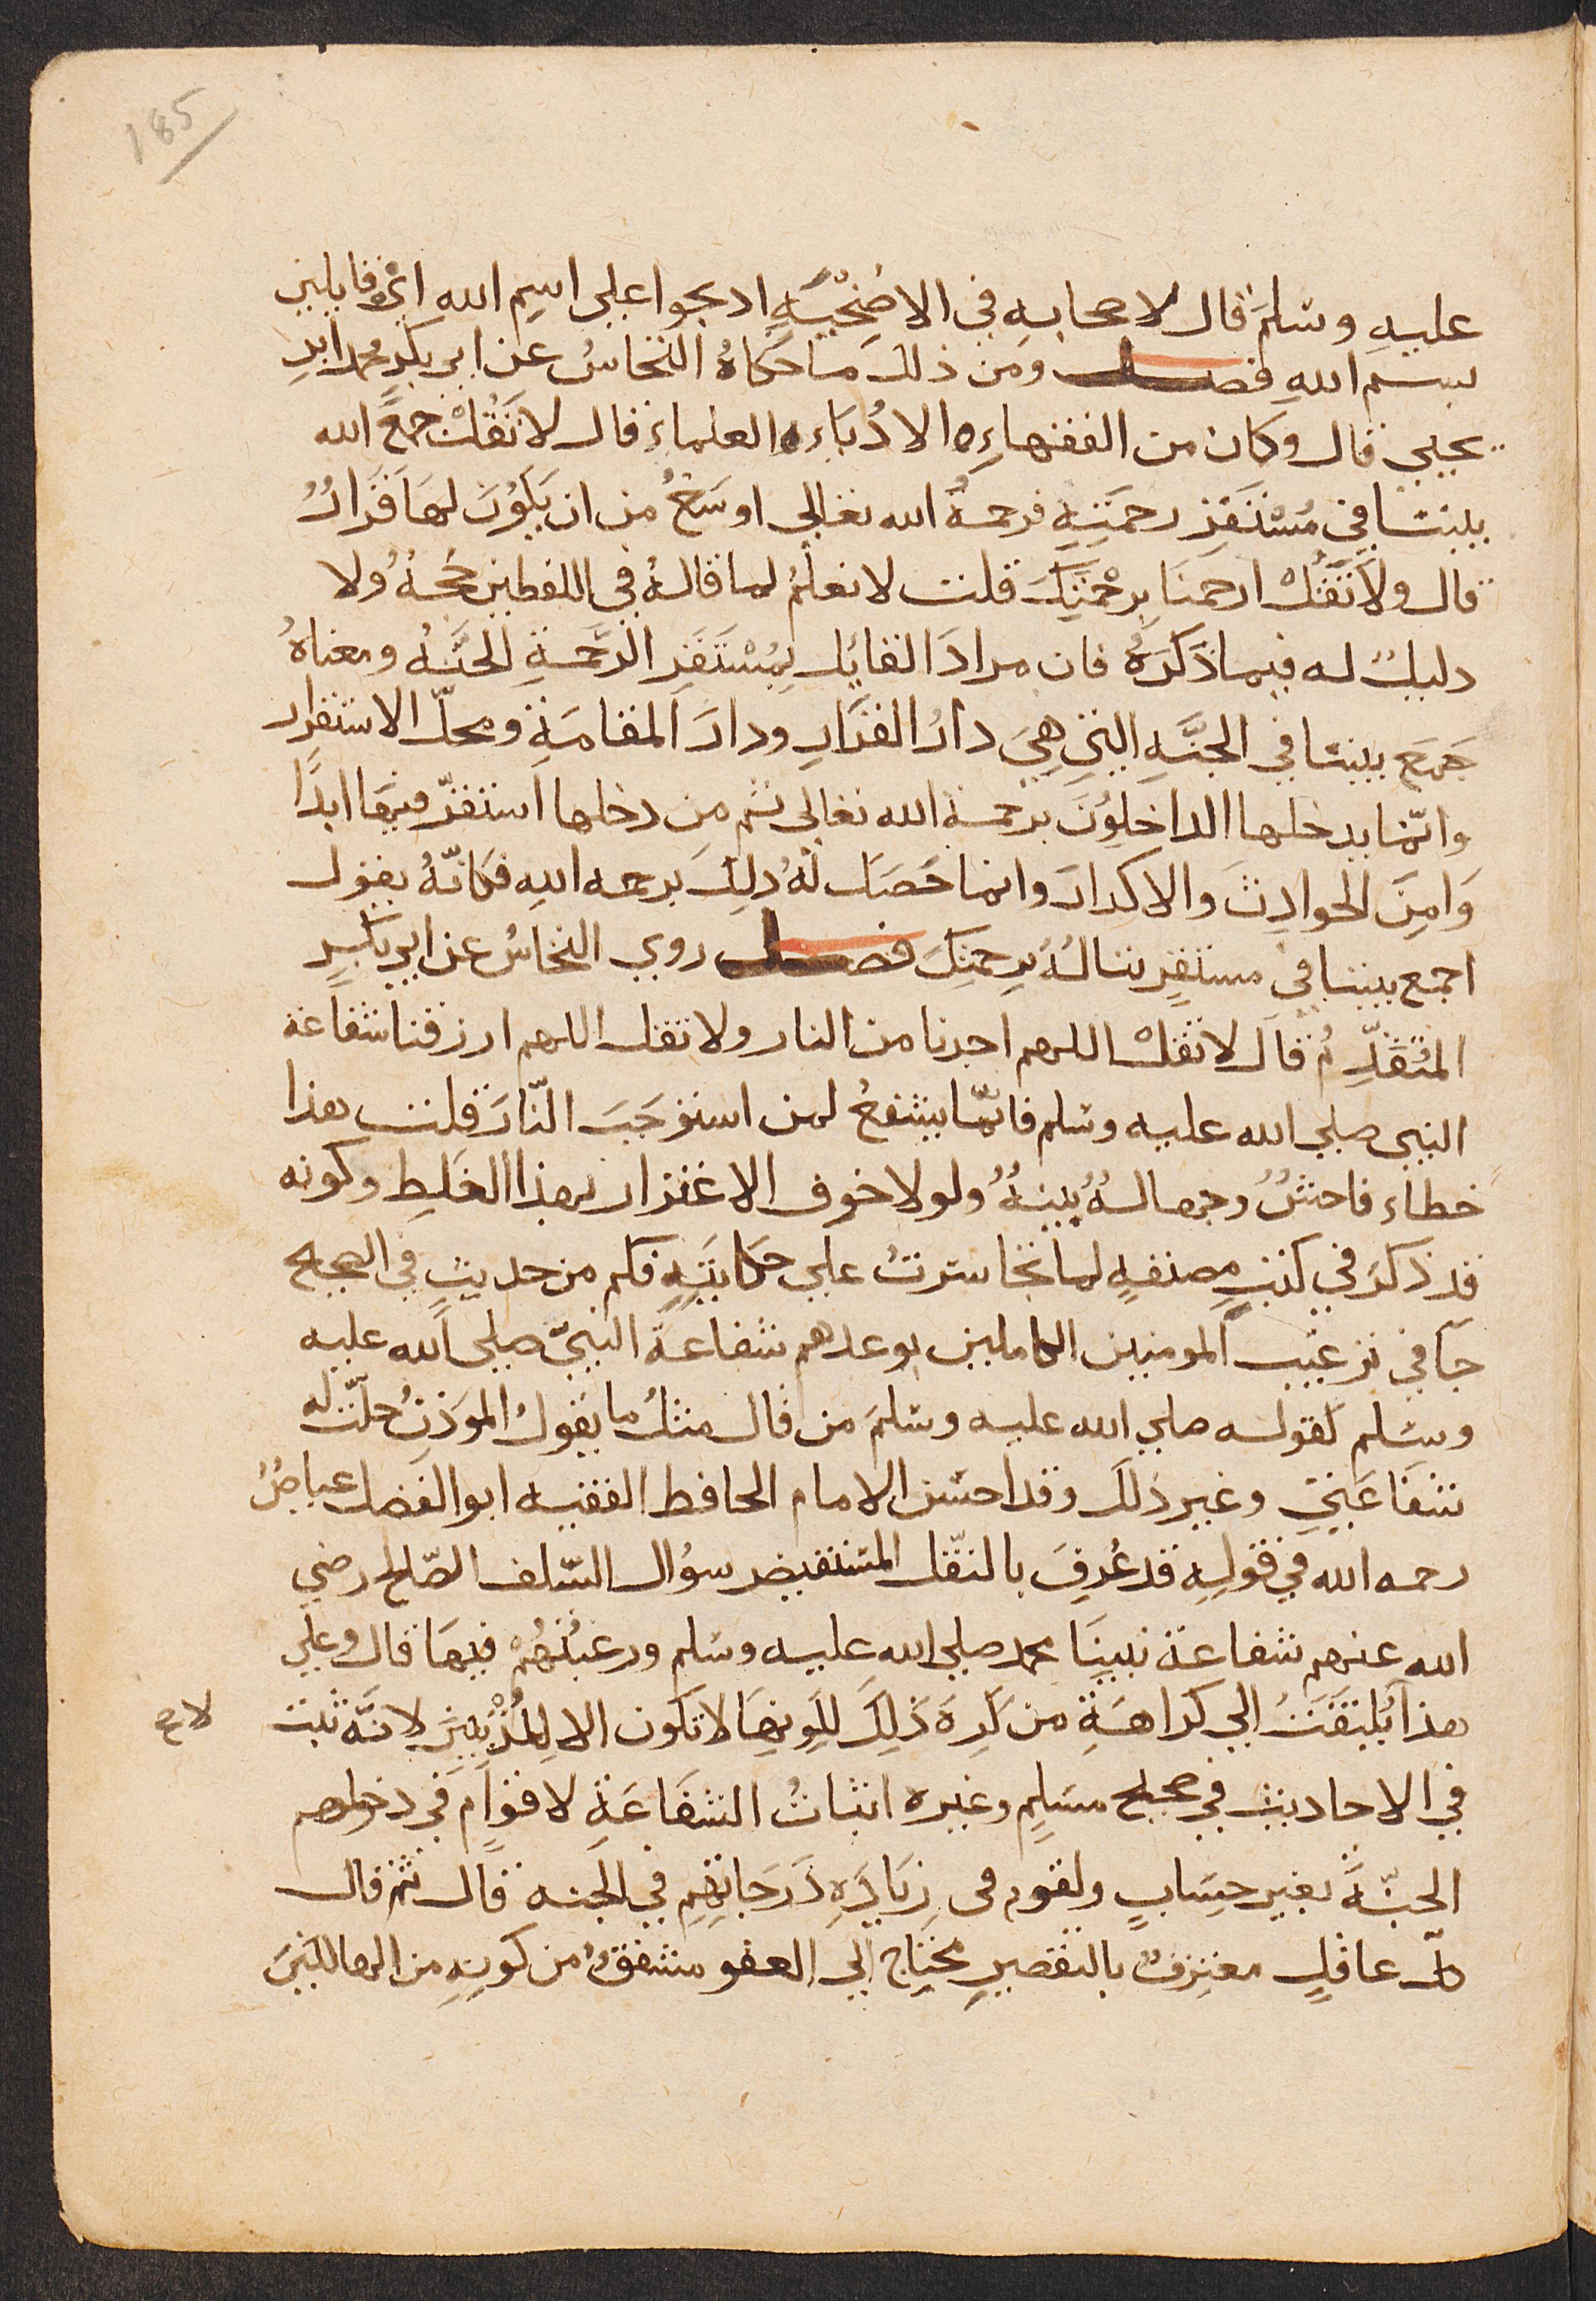 185
عليه وسلم قال لاصحابه في الاضحية اذبحوا علي اسم الله اي قايلين
بسم الله فصل ومن ذلك ما حكاه النحاس عن ابي بكر محمد ابن
يحيي قال وكان من الفقهاء الادباء العلماء قال لا تقل جمع الله
بيننا في مستقر رحمته فرحمة الله تعالي اوسع من ان يكون لها قرار
قال ولا تقل ارحمنا برحمتك قلت لا نعلم لما قاله في اللفظين حجة ولا
دليل له فيما ذكره فان مراد القايل بمستقر الرحمة الجنة ومعناه
جمع بيننا في الجنة التي هي دار القرار ودار المقامة ومحل الاستقرار
وانما يدخلها الداخلون برحمة الله تعالي ثم من دخلها استقر فيها ابدا
وامن الحوادث والاكدار وانما حصل له ذلك برحمه الله فكانه يقول
اجمع بيننا في مستقر نناله برحمتك فصل روي النحاس عن ابي بكر
المتقدم قال لا تقل اللهم اجرنا من النار ولا تقل اللهم ارزقنا شفاعة
النبي صلي الله عليه وسلم فانما يشفع لمن استوجب النار قلت هذا
خطاء فاحش وجهالة بينة ولولا خوف الاغترار بهذا الغلط وكونه
قد ذكر في كتب مصنفة لما تجاسرت علي حكايته فكم من حديث في الصحيح
جآ في ترغيب المومنين الكاملين بوعدهم شفاعة النبي صلي الله عليه
وسلم لقوله صلي الله عليه وسلم من قال مثل ما يقول الموذن حلت له
شفاعتي وغير ذلك وقد احسن الامام الحافظ الفقيه ابو الفضل عياض
رحمه الله في قوله قد عرف بالنقل المستفيض سؤال السلف الصالح رضي
الله عنهم شفاعة نبينا محمد صلي الله عليه وسلم ورغبتهم فيها قال وعلي
هذا يلتفت الي كراهة من كره ذلك لكونها لا تكون الا للمذنبين لانه ثبت
لا ح
في الاحاديث في صحيح مسلم وغيره اثبات الشفاعة لاقوام في دخولهم
الجنة بغير حساب ولقوم في زيادة درجاتهم في الجنه قال ثم قال
كل عاقل معترف بالتقصير محتاج الي العفو مشفق من كونه من الهالكين